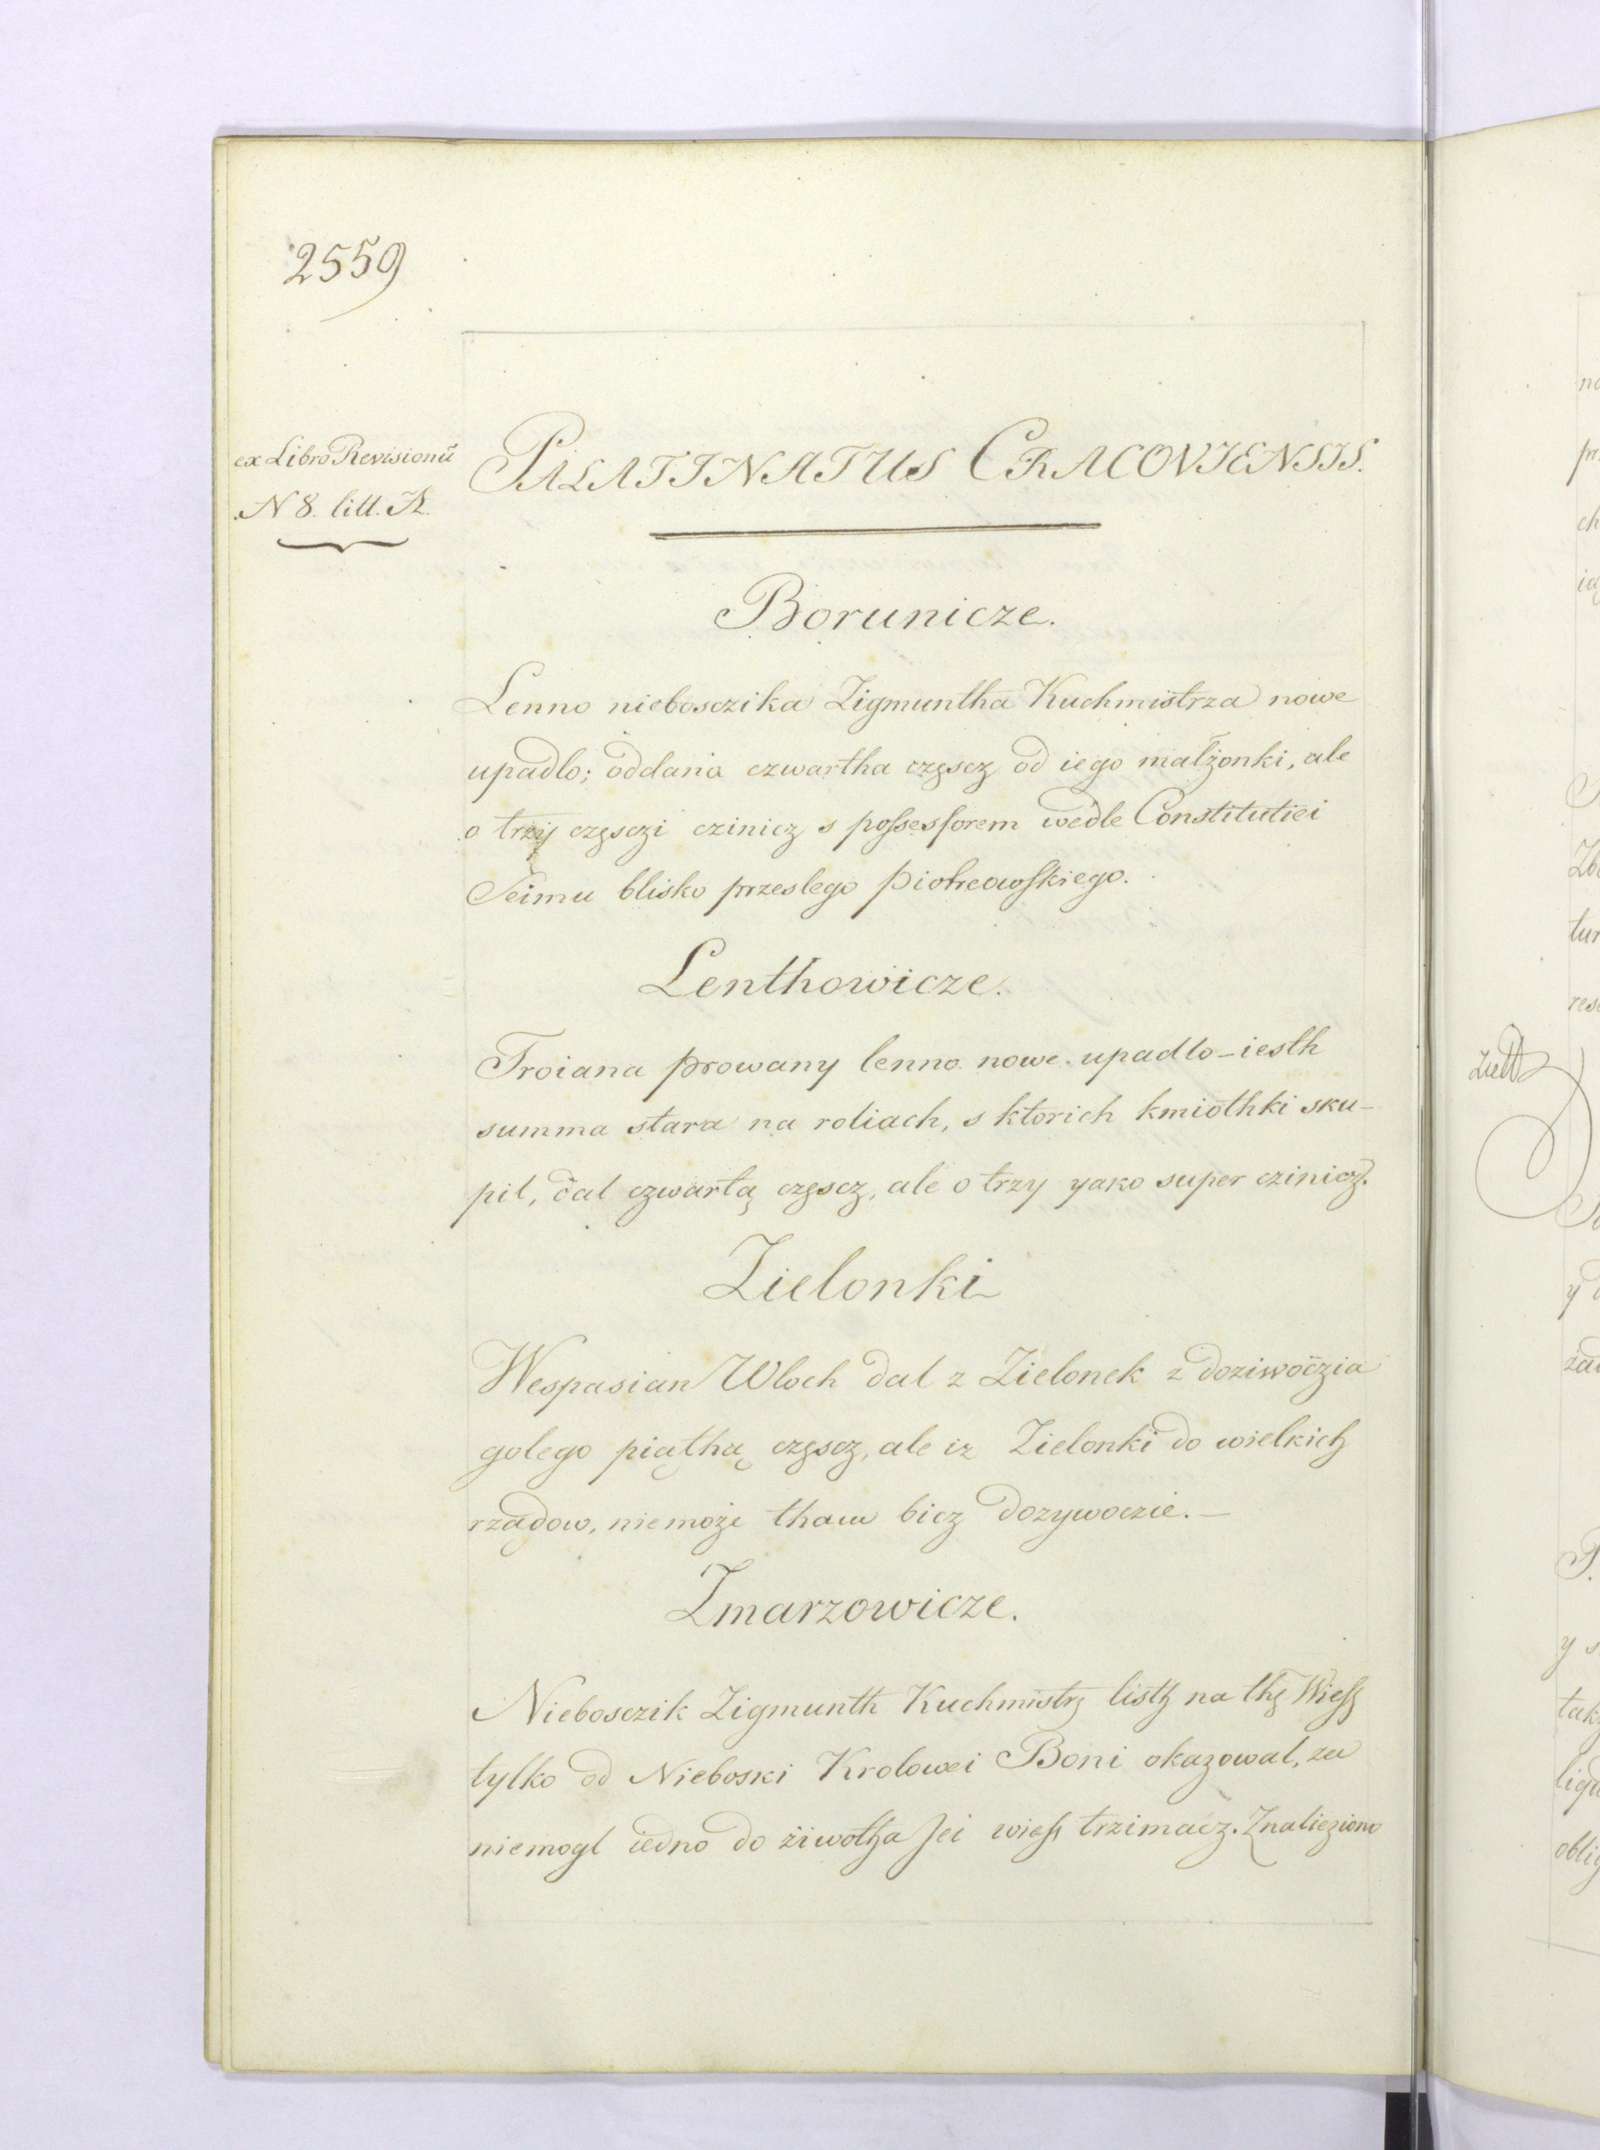 2559
ex Libro Revisionū
N 8. litt. A.
PALATINATUS CRACOVIENSIS.
Borunicze.
Lenno niebosczika Zigmuntha Kuchmistrza nowe
upadlo; oddana czwartha częscz od iego małżonki, ale
o trzy częsczi czinicz s possessorem wedle Constitutiei
Seimu blisko przeslego Piotrcowskiego.
Lenthowicze.
Troiana Prowany lenno nowe upadlo iesth
summa stara na roliach, s ktorich kmiothki sku-
pil, dal czwartą częscz, ale o trzy yako super czinicz.
Zielonki
Wespasian Wloch dal z Zielonek z doziwoczia
golego piąthą częscz, ale iz Zielonki do wielkich
rządow, niemoże tham bicz dozywoczie.
Zmarzowicze.
Niebosczik Zigmunth Kuchmistrz listh na thę Wiess
tylko od Nieboski Krolowei Boni okazowal, za
niemogl iedno do żiwotha Jei wiess trzimacz. Znalieziono